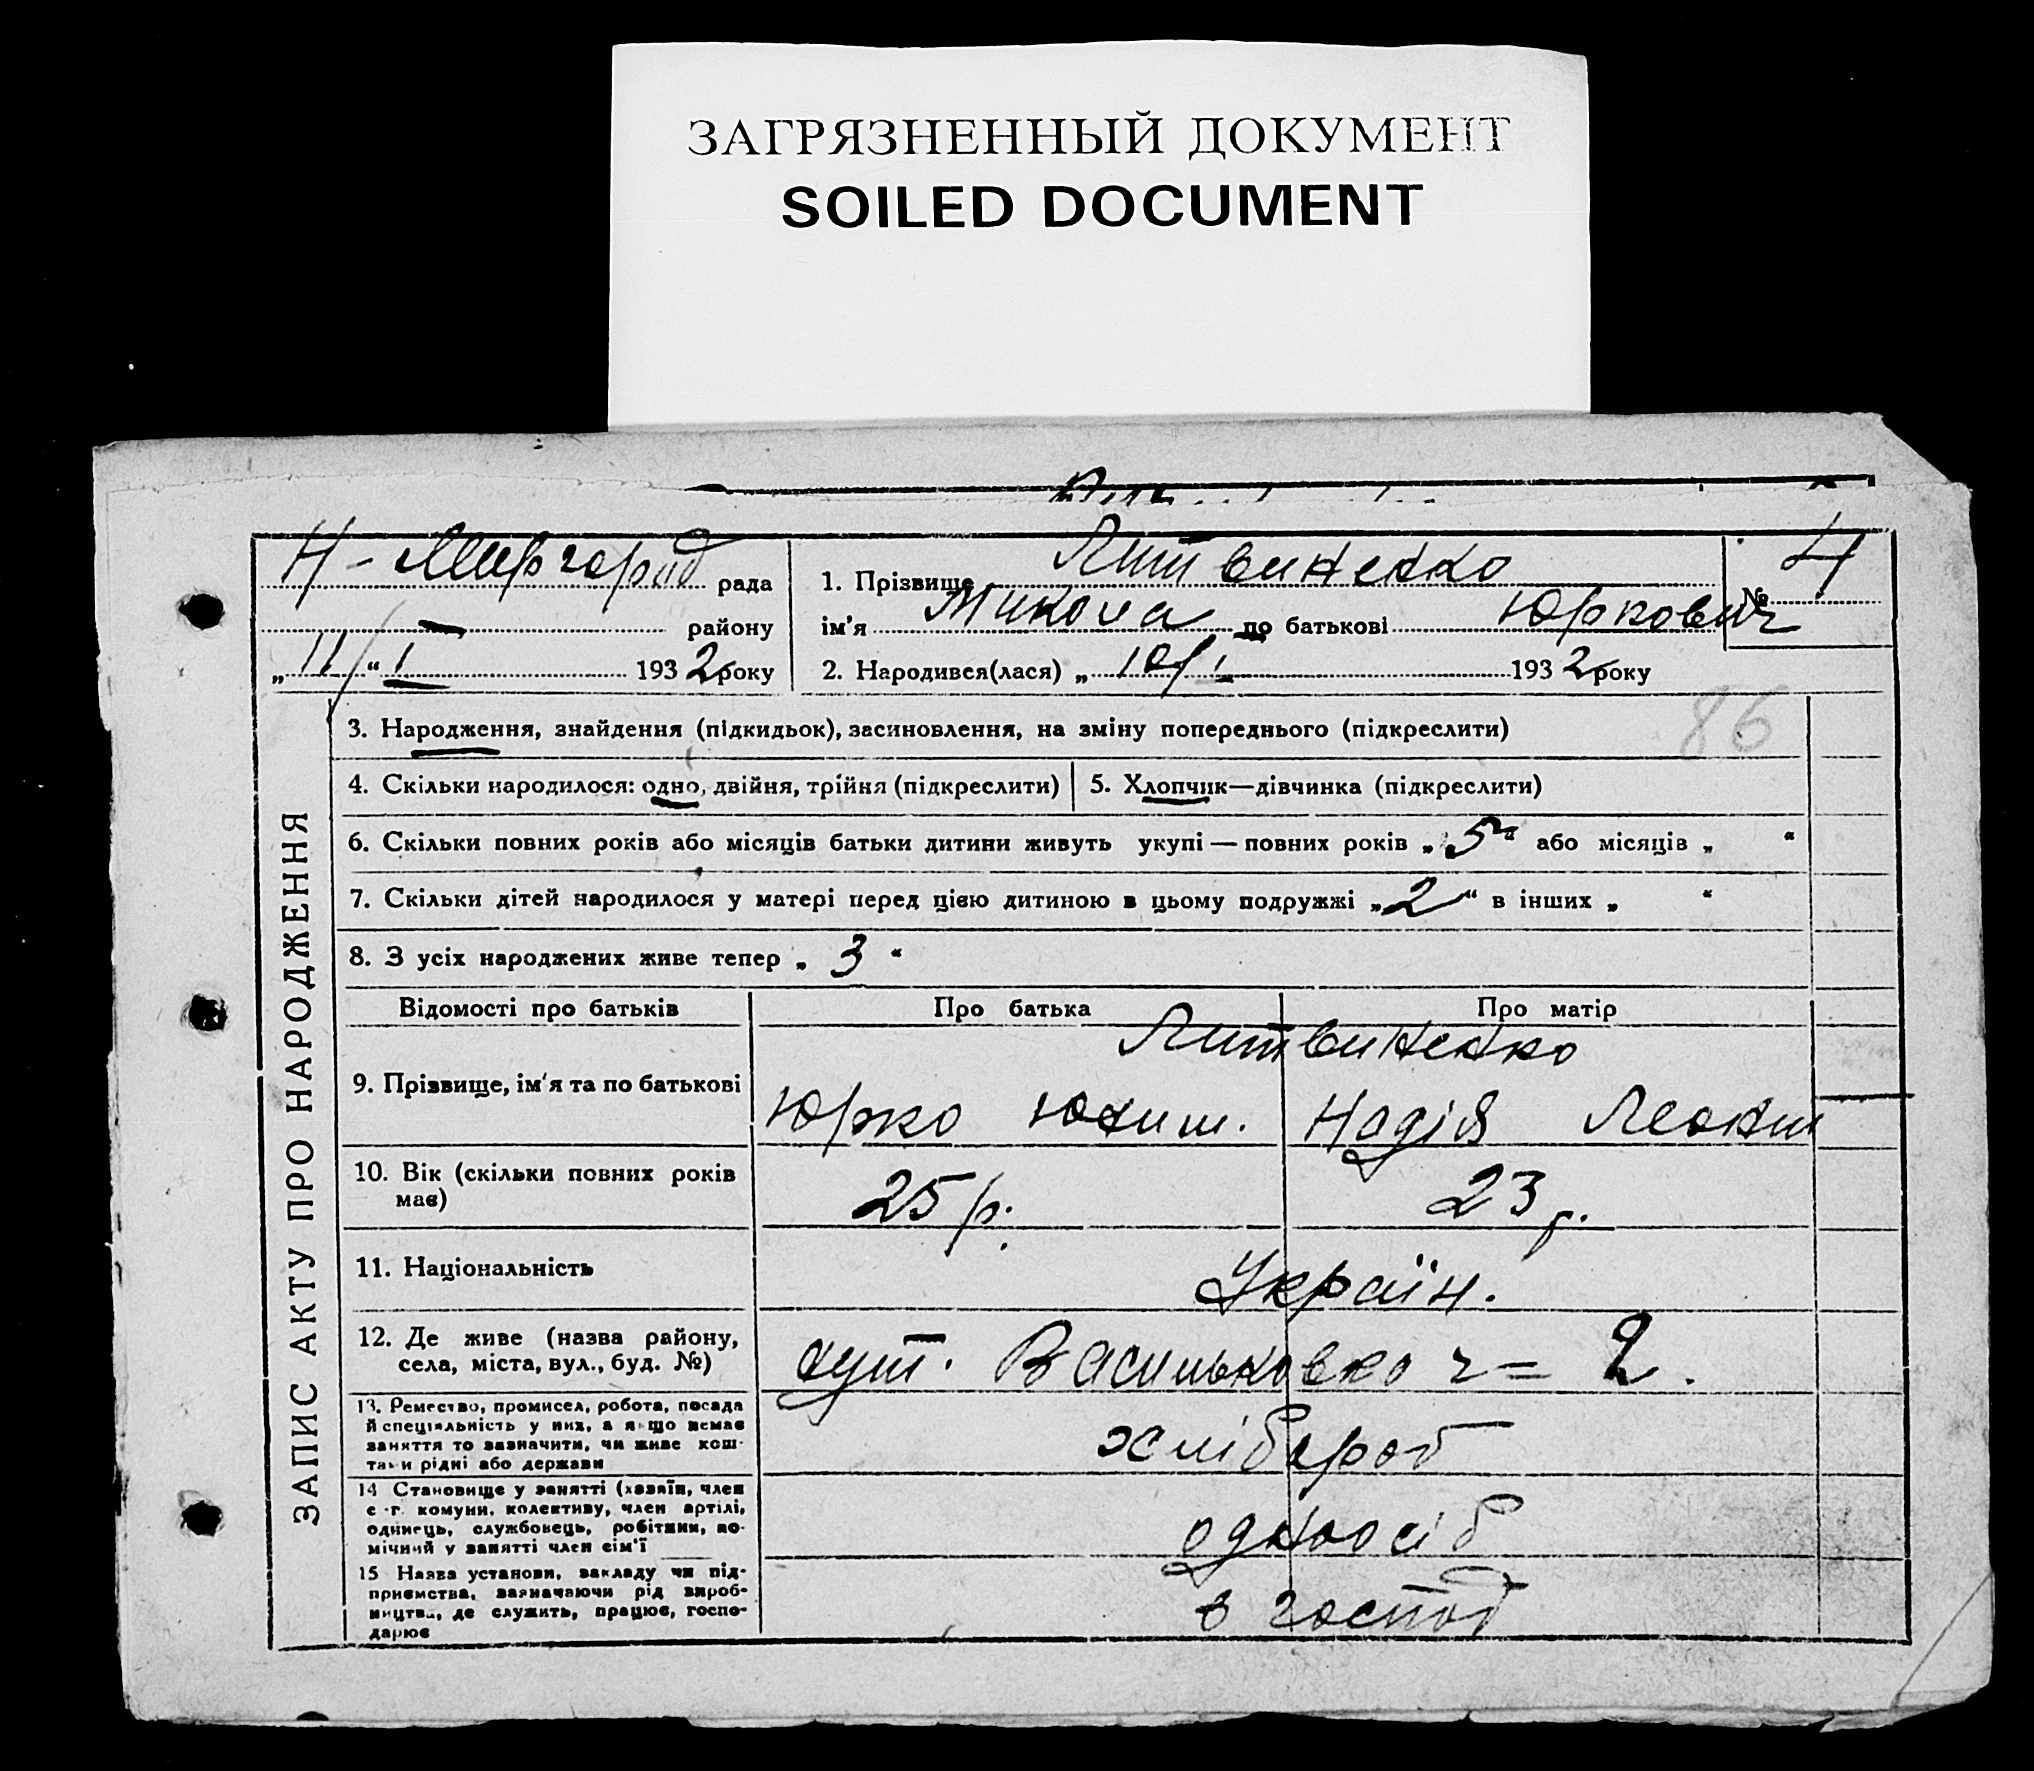 ЗАГРЯЗНЕННЫЙ ДОКУМЕНТ
SOILED DOCUMENT
Н-Миргород рада
району
„11/“ I 1932 року
1. Прізвище Литвиненко
ім'я Микола по батькові Юркович
2. Народився(лася) „10/I 1932 року
№ 4
86
ЗАПИС АКТУ ПРО НАРОДЖЕННЯ
3. Народження, знайдення (підкидьок), засиновлення, на зміну попереднього (підкреслити)
4. Скільки народилося: одно, двійня, трійня (підкреслити)
5. Хлопчик—дівчинка (підкреслити)
6. Скільки повних років або місяців батьки дитини живуть укупі — повних років „5“ або місяців „ “
7. Скільки дітей народилося у матері перед цією дитиною в цьому подружжі „2“ в інших „ “
8. З усіх народжених живе тепер „3“
Відомості про батьків Про батька Про матір
Литвиненко
9. Прізвище, ім'я та по батькові Юрко Юхим. Надія Леонт
10. Вік (скільки повних років має) 25 р. 23 р.
11. Національність Україн.
12. Де живе (назва району, села, міста, вул., буд. №)
хут. Васильковко ч= 2.
13. Ремество, промисел, робота, посада
й спеціяльність у них, а якщо немає
заняття то зазначити, чи живе кош-
тами рідні або держави
хлібороб
14 Становище у занятті (хазяїн, член
с-г. комуни, колективу, член артілі,
одинець, службовець, робітник, по-
мічний у занятті член сім'ї
одноосіб
15 Назва установи, закладу чи під-
приємства, зазначаючи рід вироб-
ництва, де служить, працює, госпо-
дарює
в господ